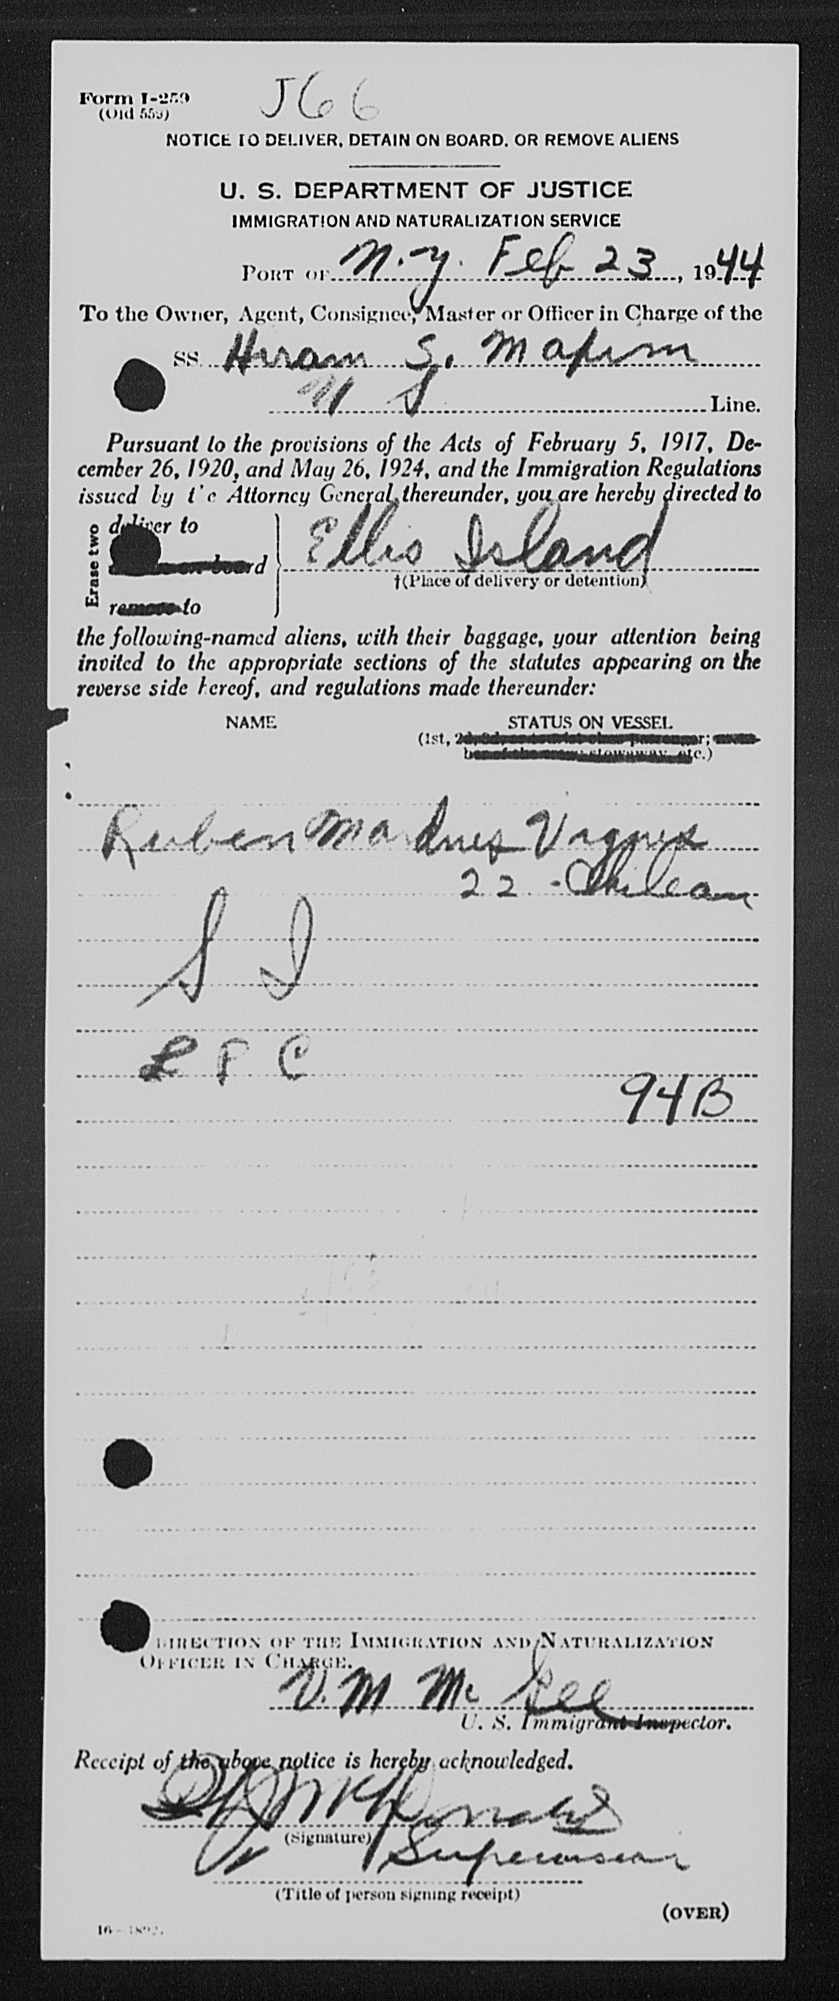 Form I-259
(Old 553)
J66
NOTICE TO DELIVER, DETAIN ON BOARD, OR REMOVE ALIENS
U. S. DEPARTMENT OF JUSTICE
IMMIGRATION AND NATURALIZATION SERVICE
PORT OF N.Y. Feb 23, 1944
To the Owner, Agent, Consignee, Master or Officer in Charge of the
SS. Hiram S. Maxim
N S Line.
Pursuant to the provisions of the Acts of February 5, 1917, De-
cember 26, 1920, and May 26, 1924, and the Immigration Regulations
issued by the Attorney General thereunder, you are hereby directed to
Erase two
deliver to
on board
remove to
Ellis Island
†(Place of delivery or detention)
the following-named aliens, with their baggage, your attention being
invited to the appropriate sections of the statutes appearing on the
reverse side hereof, and regulations made thereunder:
NAME STATUS ON VESSEL
(1st, 2d, 3d, or tourist class passenger; mem-
ber of the crew, stowaway, etc.)
Ruben
22 - Chilean
S I
L P C
94B
DIRECTION OF THE IMMIGRATION AND NATURALIZATION
OFFICER IN CHARGE.
V. M. McGee
U. S. Immigrant Inspector.
Receipt of the above notice is hereby acknowledged.
(Signature)
Supervisor
(Title of person signing receipt)
(OVER)